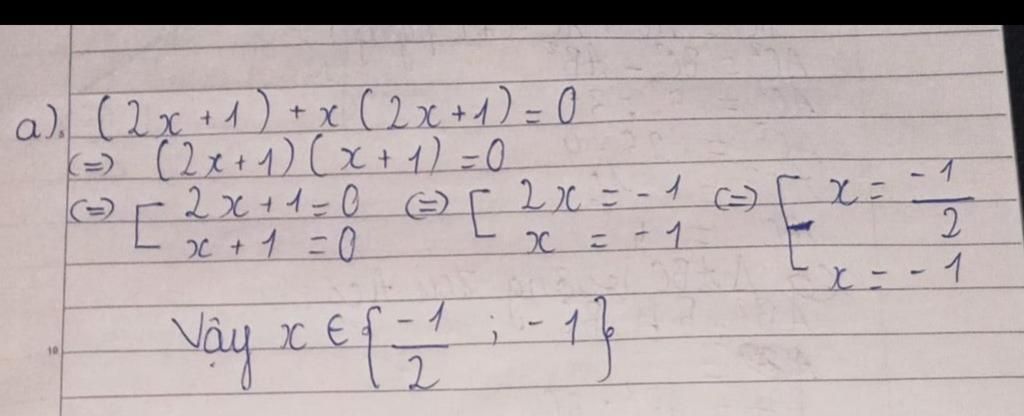 a). (2x+1) + x(2x+1) = 0
(=) (2x+1)(x+1) = 0
(=) [ 2x+1=0 (=) [ 2x = -1 (=) [ x = -1/2
x+1 = 0 x = -1 x = -1
Vậy x ∈ {-1/2 ; -1}
10